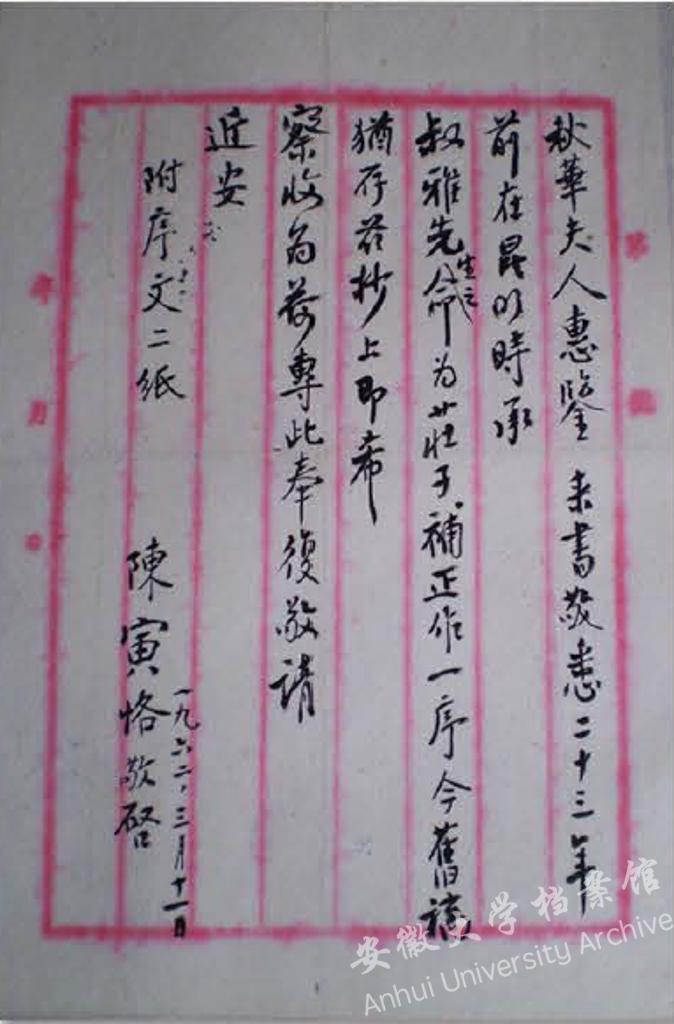 秋華夫人惠鑒 来書敬悉二十三年
前在昆明時承
叔雅先生之命为莊子補正作一序今舊稿
猶存兹抄上即希
察收为荷專此奉復敬請
近安
附序文二紙
陳寅恪敬啓
一九六二，三月十一日
年 月
安徽大学档案馆
Anhui University Archive